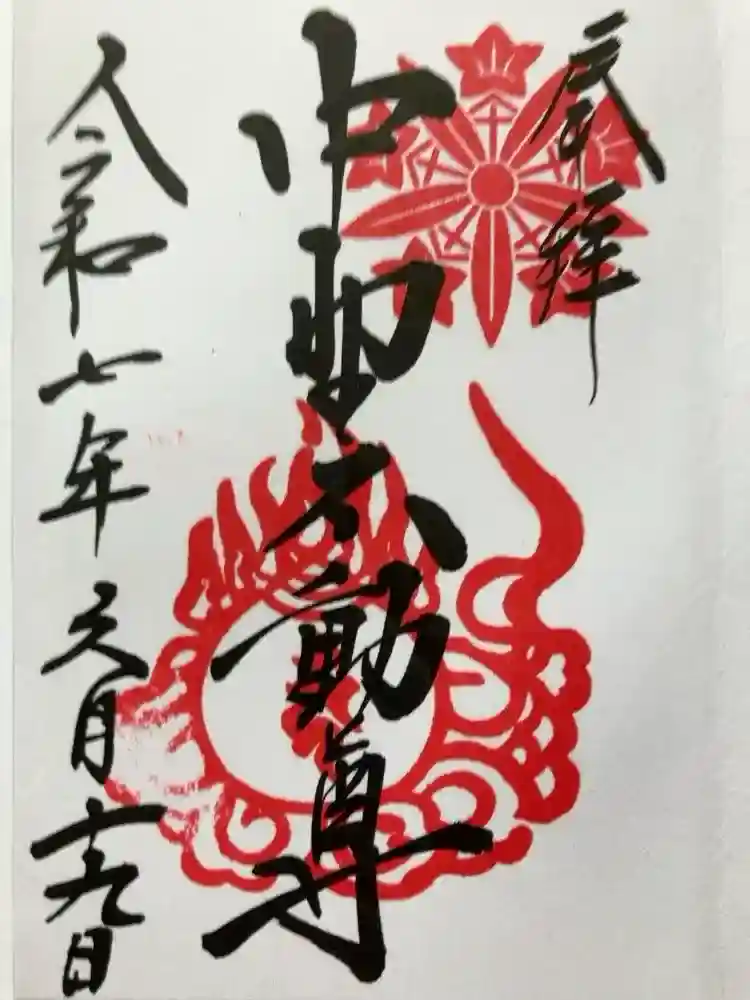 奉拝
中野不動尊
令和七年六月十九日